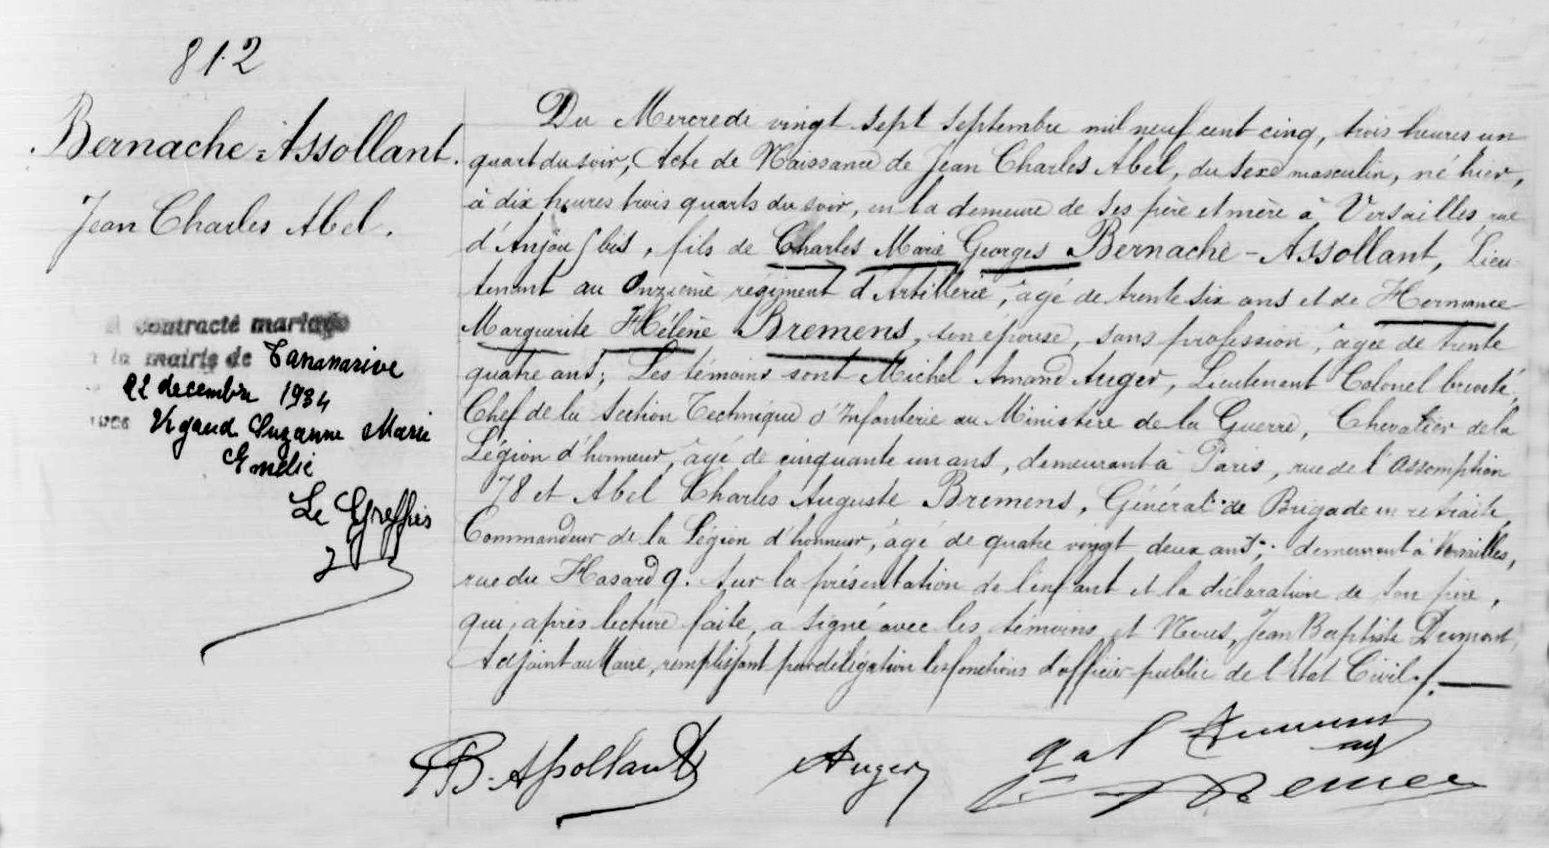 812
Bernache-Assollant.
Jean Charles Abel.
A contracté mariage
à la mairie de Tananarive
22 decembre 1934
avec Vigaud Suzanne Marie
Emélie
Le Greffier
Du Mercredi vingt sept Septembre mil neuf cent cinq, trois heures un
quart du soir, Acte de Naissance de Jean Charles Abel, du sexe masculin, né hier,
à dix heures trois quarts du soir, en la demeure de ses père et mère à Versailles, rue
d'Anjou 5 bis, fils de Charles Marie Georges Bernache-Assollant, Lieu-
tenant au Onzième régiment d'Artillerie, âgé de trente six ans et de Hermance
Marguerite Hélène Bremens, son épouse, sans profession, âgée de trente
quatre ans; Les témoins sont Michel Amand Auger, Lieutenant Colonel breveté,
Chef de la Section Technique d'Infanterie au Ministère de la Guerre, Chevalier de la
Légion d'honneur, âgé de cinquante un ans, demeurant à Paris, rue de l'Assomption
78 et Abel Charles Auguste Bremens, Général de Brigade en retraite,
Commandeur de la Légion d'honneur, âgé de quatre vingt deux ans, demeurant à Versailles,
rue du Hasard 9. Sur la présentation de l'enfant et la déclaration de son père,
qui, après lecture faite, a signé avec les témoins et Nous, Jean Baptiste Dumont,
Adjoint au Maire, remplissant par délégation les fonctions d'officier public de l'Etat Civil./.
B. Assollant Auger gal Bremens